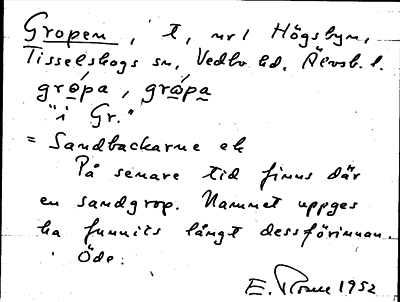 Gropen, t, nr 1 Högsbyn,
Tisselskogs sn, Vedbo hd, Älvsb. l.
gro̱´pa, grω̱´pa̱
"i Gr."
= Sandbackarne ek
På senare tid finns där
en sandgrop. Namnet uppges
ha funnits långt dessförinnan.
Öde.
E. 1952